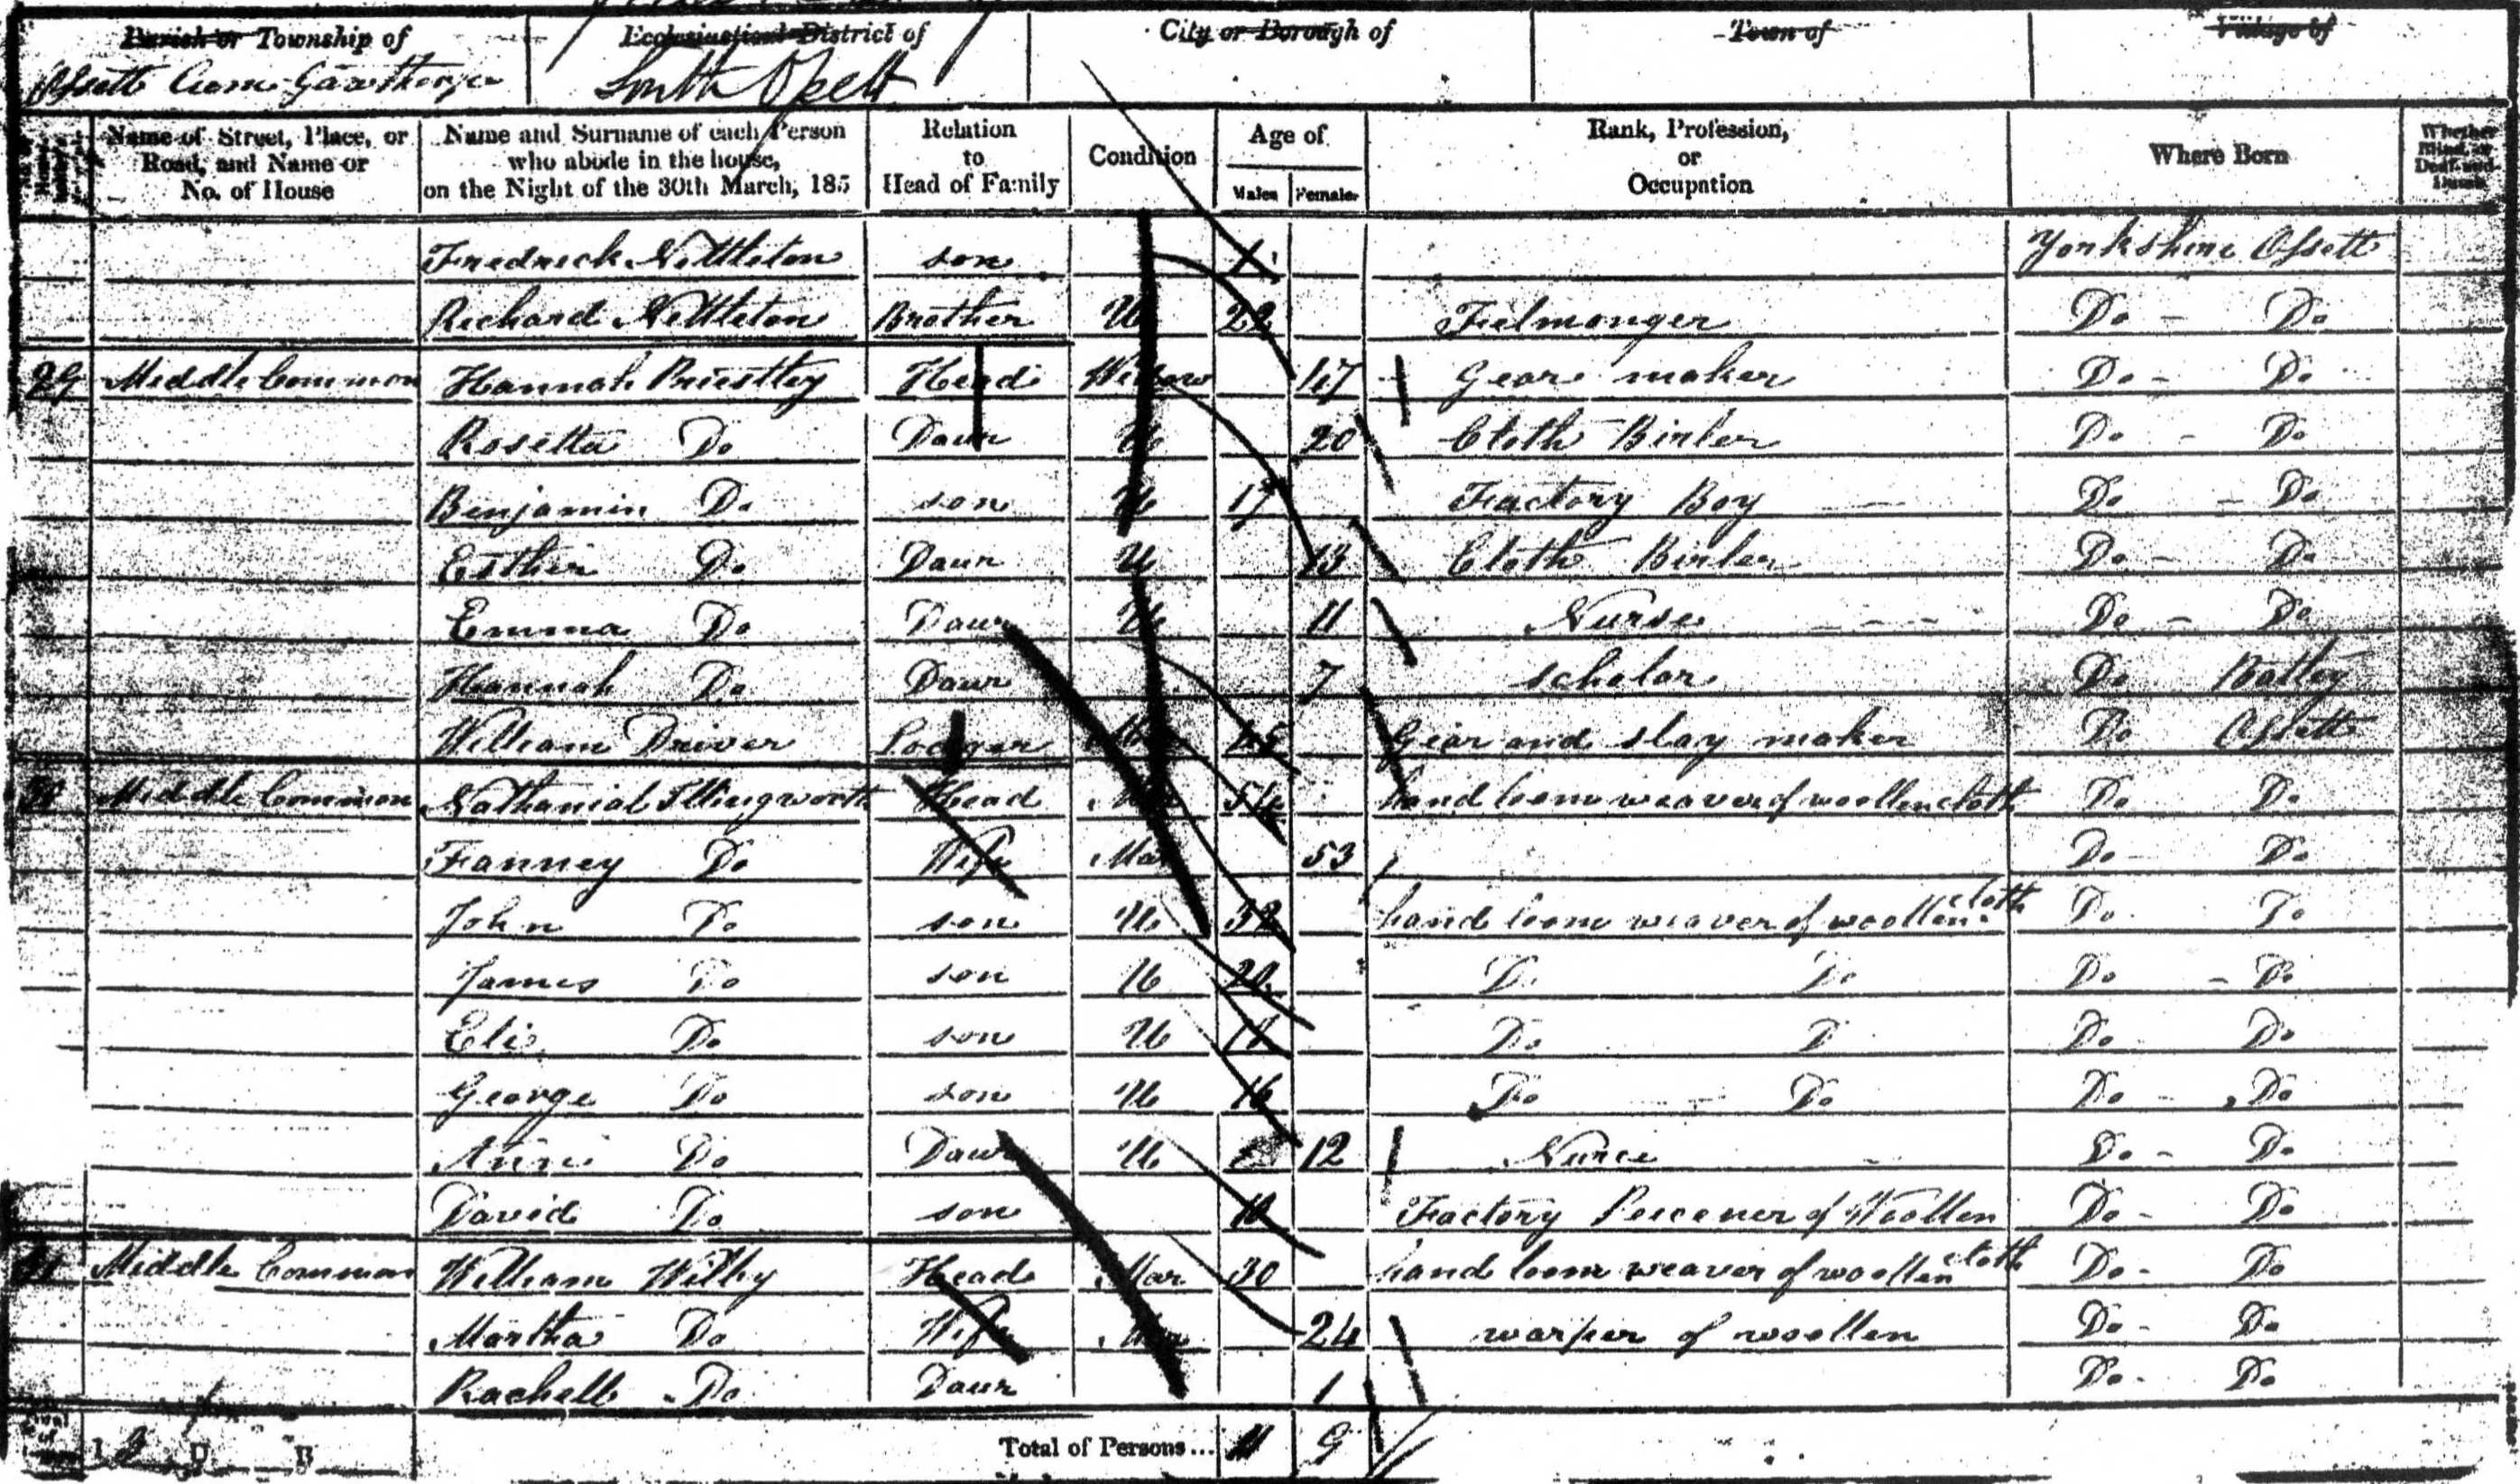 Parish or Township of Ecclesiastical District of City or Borough of Town of Village of
Ossett Cum Gawthorpe South Ossett
Name of Street, Place, or Road, and Name or No. of House
Name and Surname of each Person who abode in the house, on the Night of the 30th March, 185
Relation to Head of Family
Condition
Age of
Males Females
Rank, Profession, or Occupation
Where Born
Whether Blind, or Deaf-and-Dumb
Fredrick Nettleton son 1 Yorkshire Ossett
Richard Nettleton Brother U 22 Felmonger Do - Do
29 Middle Common Hannah Priestley Head Widow 47 Gear maker Do - Do
Rosetta Do Daur U 20 Cloth Birler Do - Do
Benjamin Do son U 17 Factory Boy Do - Do
Esther Do Daur U 13 Cloth Birler Do - Do
Emma Do Daur U 11 Nurse Do - Do
Hannah Do Daur 7 scholar Do Batley
William Driver Lodger 45 Gear and slay maker Do Ossett
Middle Common Nathanial Illingworth Head Mar 54 hand loom weaver of woollen cloth Do Do
Fanney Do Wife Mar 53 Do - Do
John Do son U 32 hand loom weaver of woollen cloth Do Do
James Do son U Do Do Do - Do
Eli Do son U Do D Do - Do
George Do son U 16 Do - Do Do - Do
Do Daur U 12 Nurce Do - Do
David Do son 10 Factory Peicener of Woollen Do - Do
Middle Common William Wilby Head Mar 30 hand loom weaver of woollen cloth Do - Do
Martha Do Wife Mar 24 warper of woollen Do - Do
Rachell Do Daur 1 Do - Do
Total of Persons... 11 9